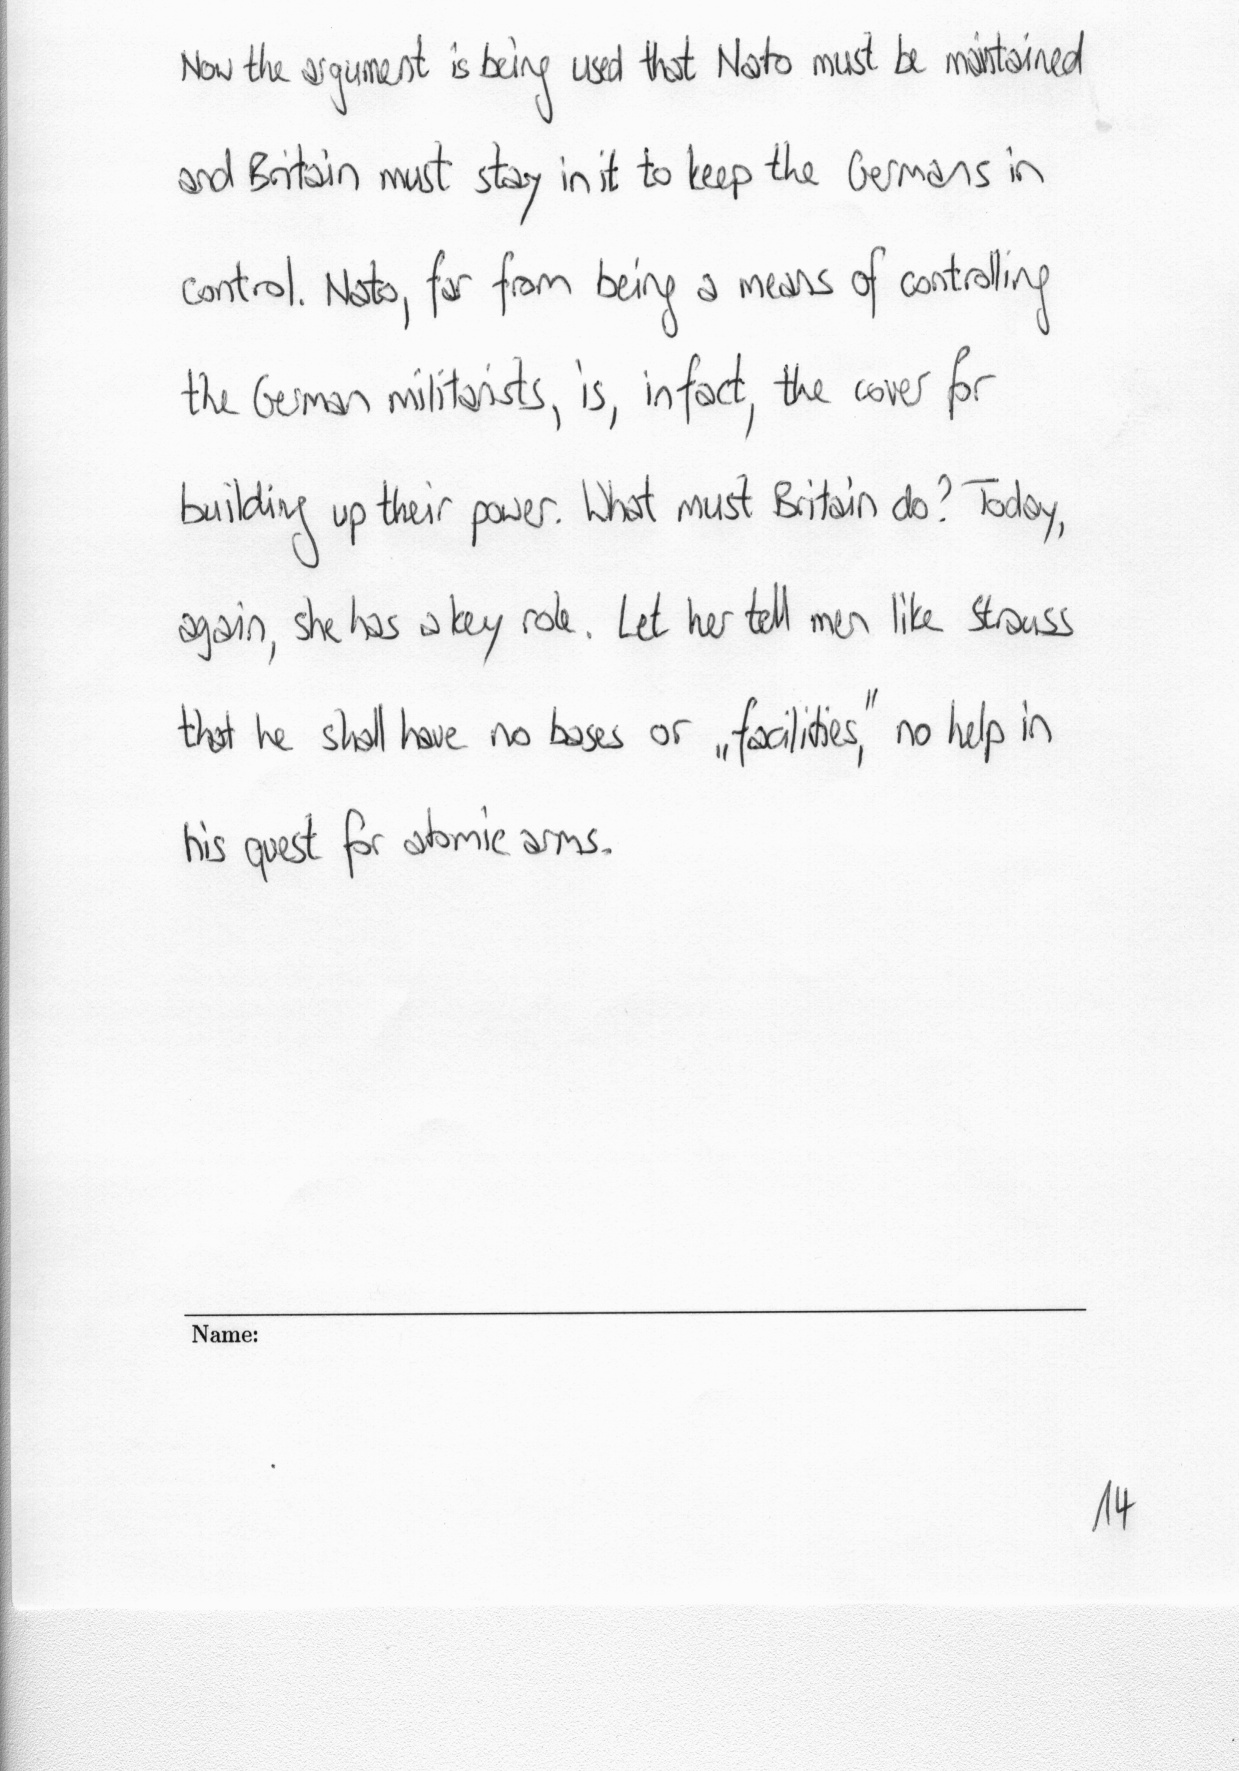 Now the argument is being used that Nato must be maintained
and Britain must stay in it to keep the Germans in
control. Nato, far from being a means of controlling
the German militarists, is, in fact, the cover for
building up their power. What must Britain do? Today,
again, she has a key role. Let her tell men like Strauss
that he shall have no bases or „facilities," no help in
his quest for atomic arms.
Name:
14